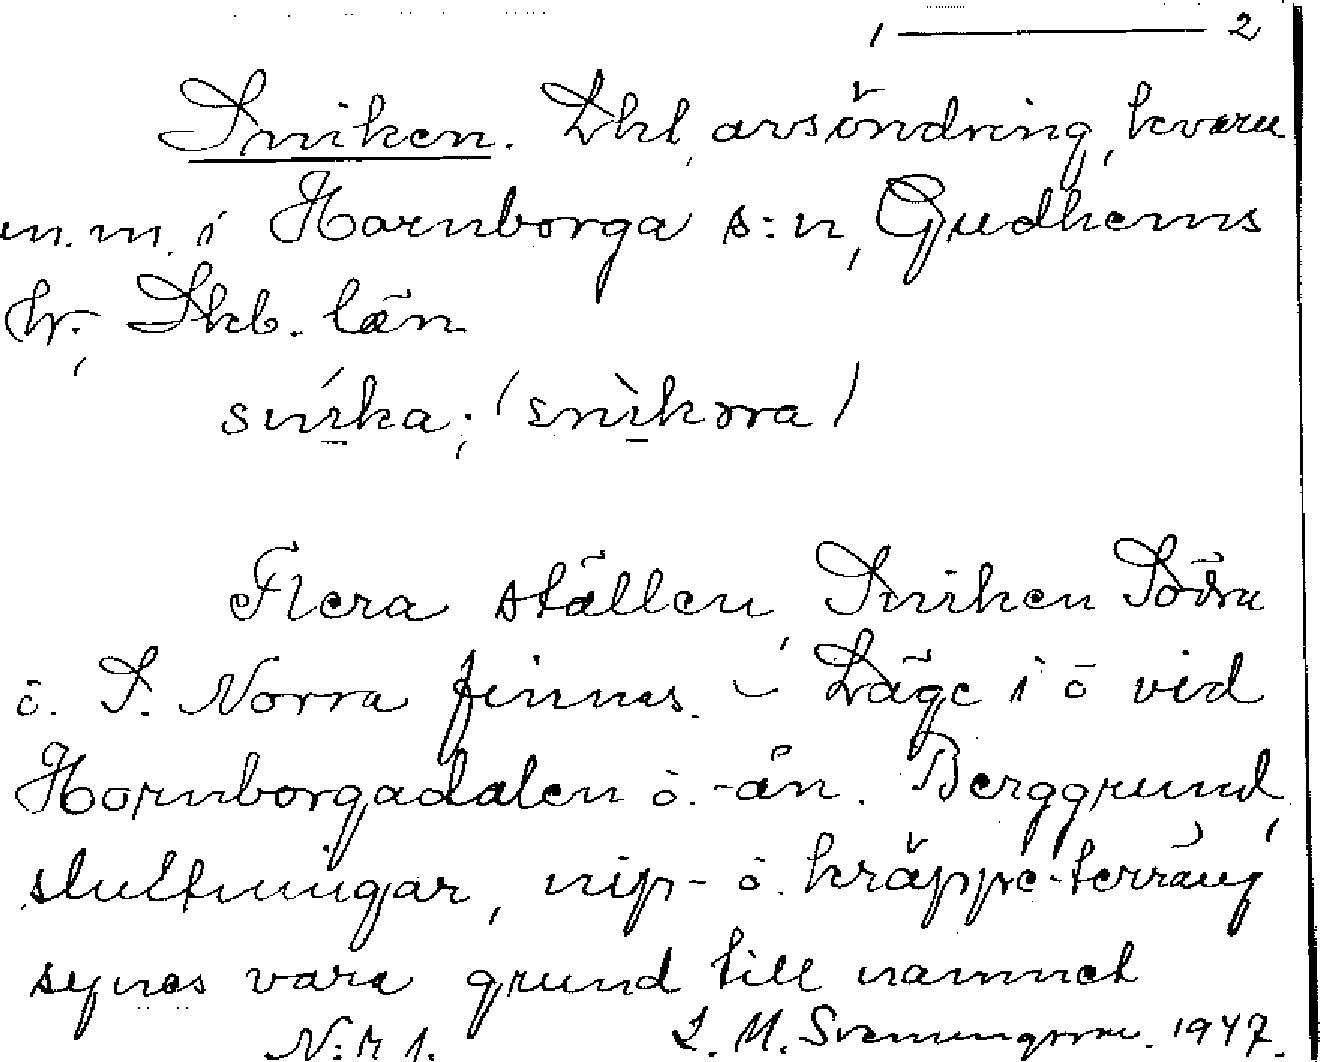 1 ——— 2
Sniken. Lht, avsöndring, kvarn
m.m. i Hornborga s:n, Gudhems
hr, Skb. län
sníka; (snìkɔra)
Flera ställen, Sniken Södra
ö. S. Norra finnas. – Läge i ö vid
Hornborgadalen ö. -ån. Berggrund,
sluttningar, nip- ö. kräppe-terräng
synes vara grund till namnet
N:r 1. L. M. Svenungsson. 1947.